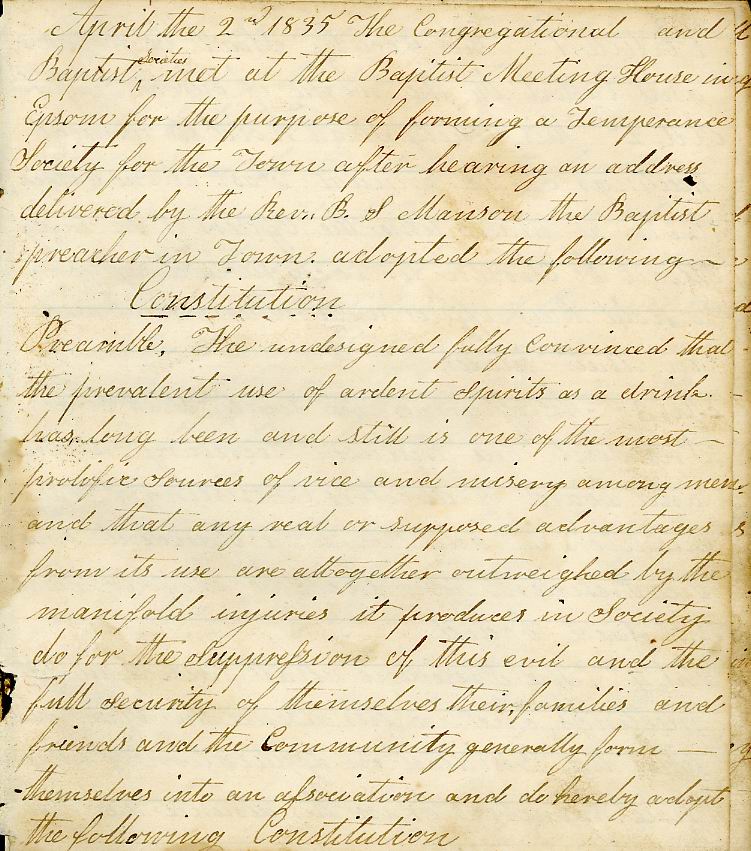 April the 2nd 1835 The Congregational and
Baptist ^societies met at the Baptist Meeting House in
Epsom for the purpose of forming a Temperance
Society for the Town after hearing an address
delivered by the Rev. B. S Manson the Baptist
preacher in Town. adopted the following
Constitution
Preamble. The undesigned fully convinced that
the prevalent use of ardent Spirits as a drink.
has long been and still is one of the most —
prolific sources of vice and misery among men
and that any real or supposed advantages
from its use are altogether outweighed by the
manifold injuries it produces in Society
do for the suppression of this evil and the
full security of themselves their families and
friends and the Community generally form —
themselves into an association and do hereby adopt
the following Constitution